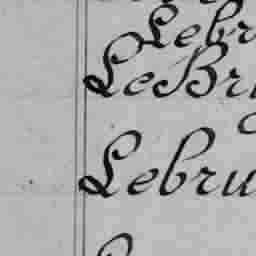 Lebr
LeBr
Lebru